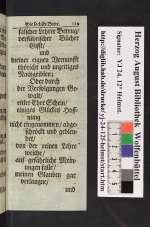 Die sechste Bitte. 119
falscher Lehrer Betrug/
verführischer Bücher
Gifft/
und
meiner eignen Vernunfft
thöricht und unzeitiges
Nachgrübeln;
Oder durch
der Verfolgungen Ge-
walt/
eitler Ehre Schein/
einiges Glückes Hoff-
nung
nicht eingenommen/ abge-
schreckt und geblen-
det/
von der reinen Lehre
weiche/
auf gefährliche Mein-
ungen falle/
meinen Glauben gar
verläugne/
und
Herzog August Bibliothek Wolfenbüttel
Signatur: YJ 24, 12° Helmst.
http://diglib.hab.de/drucke/yj-24-12f-helmst/start.htm